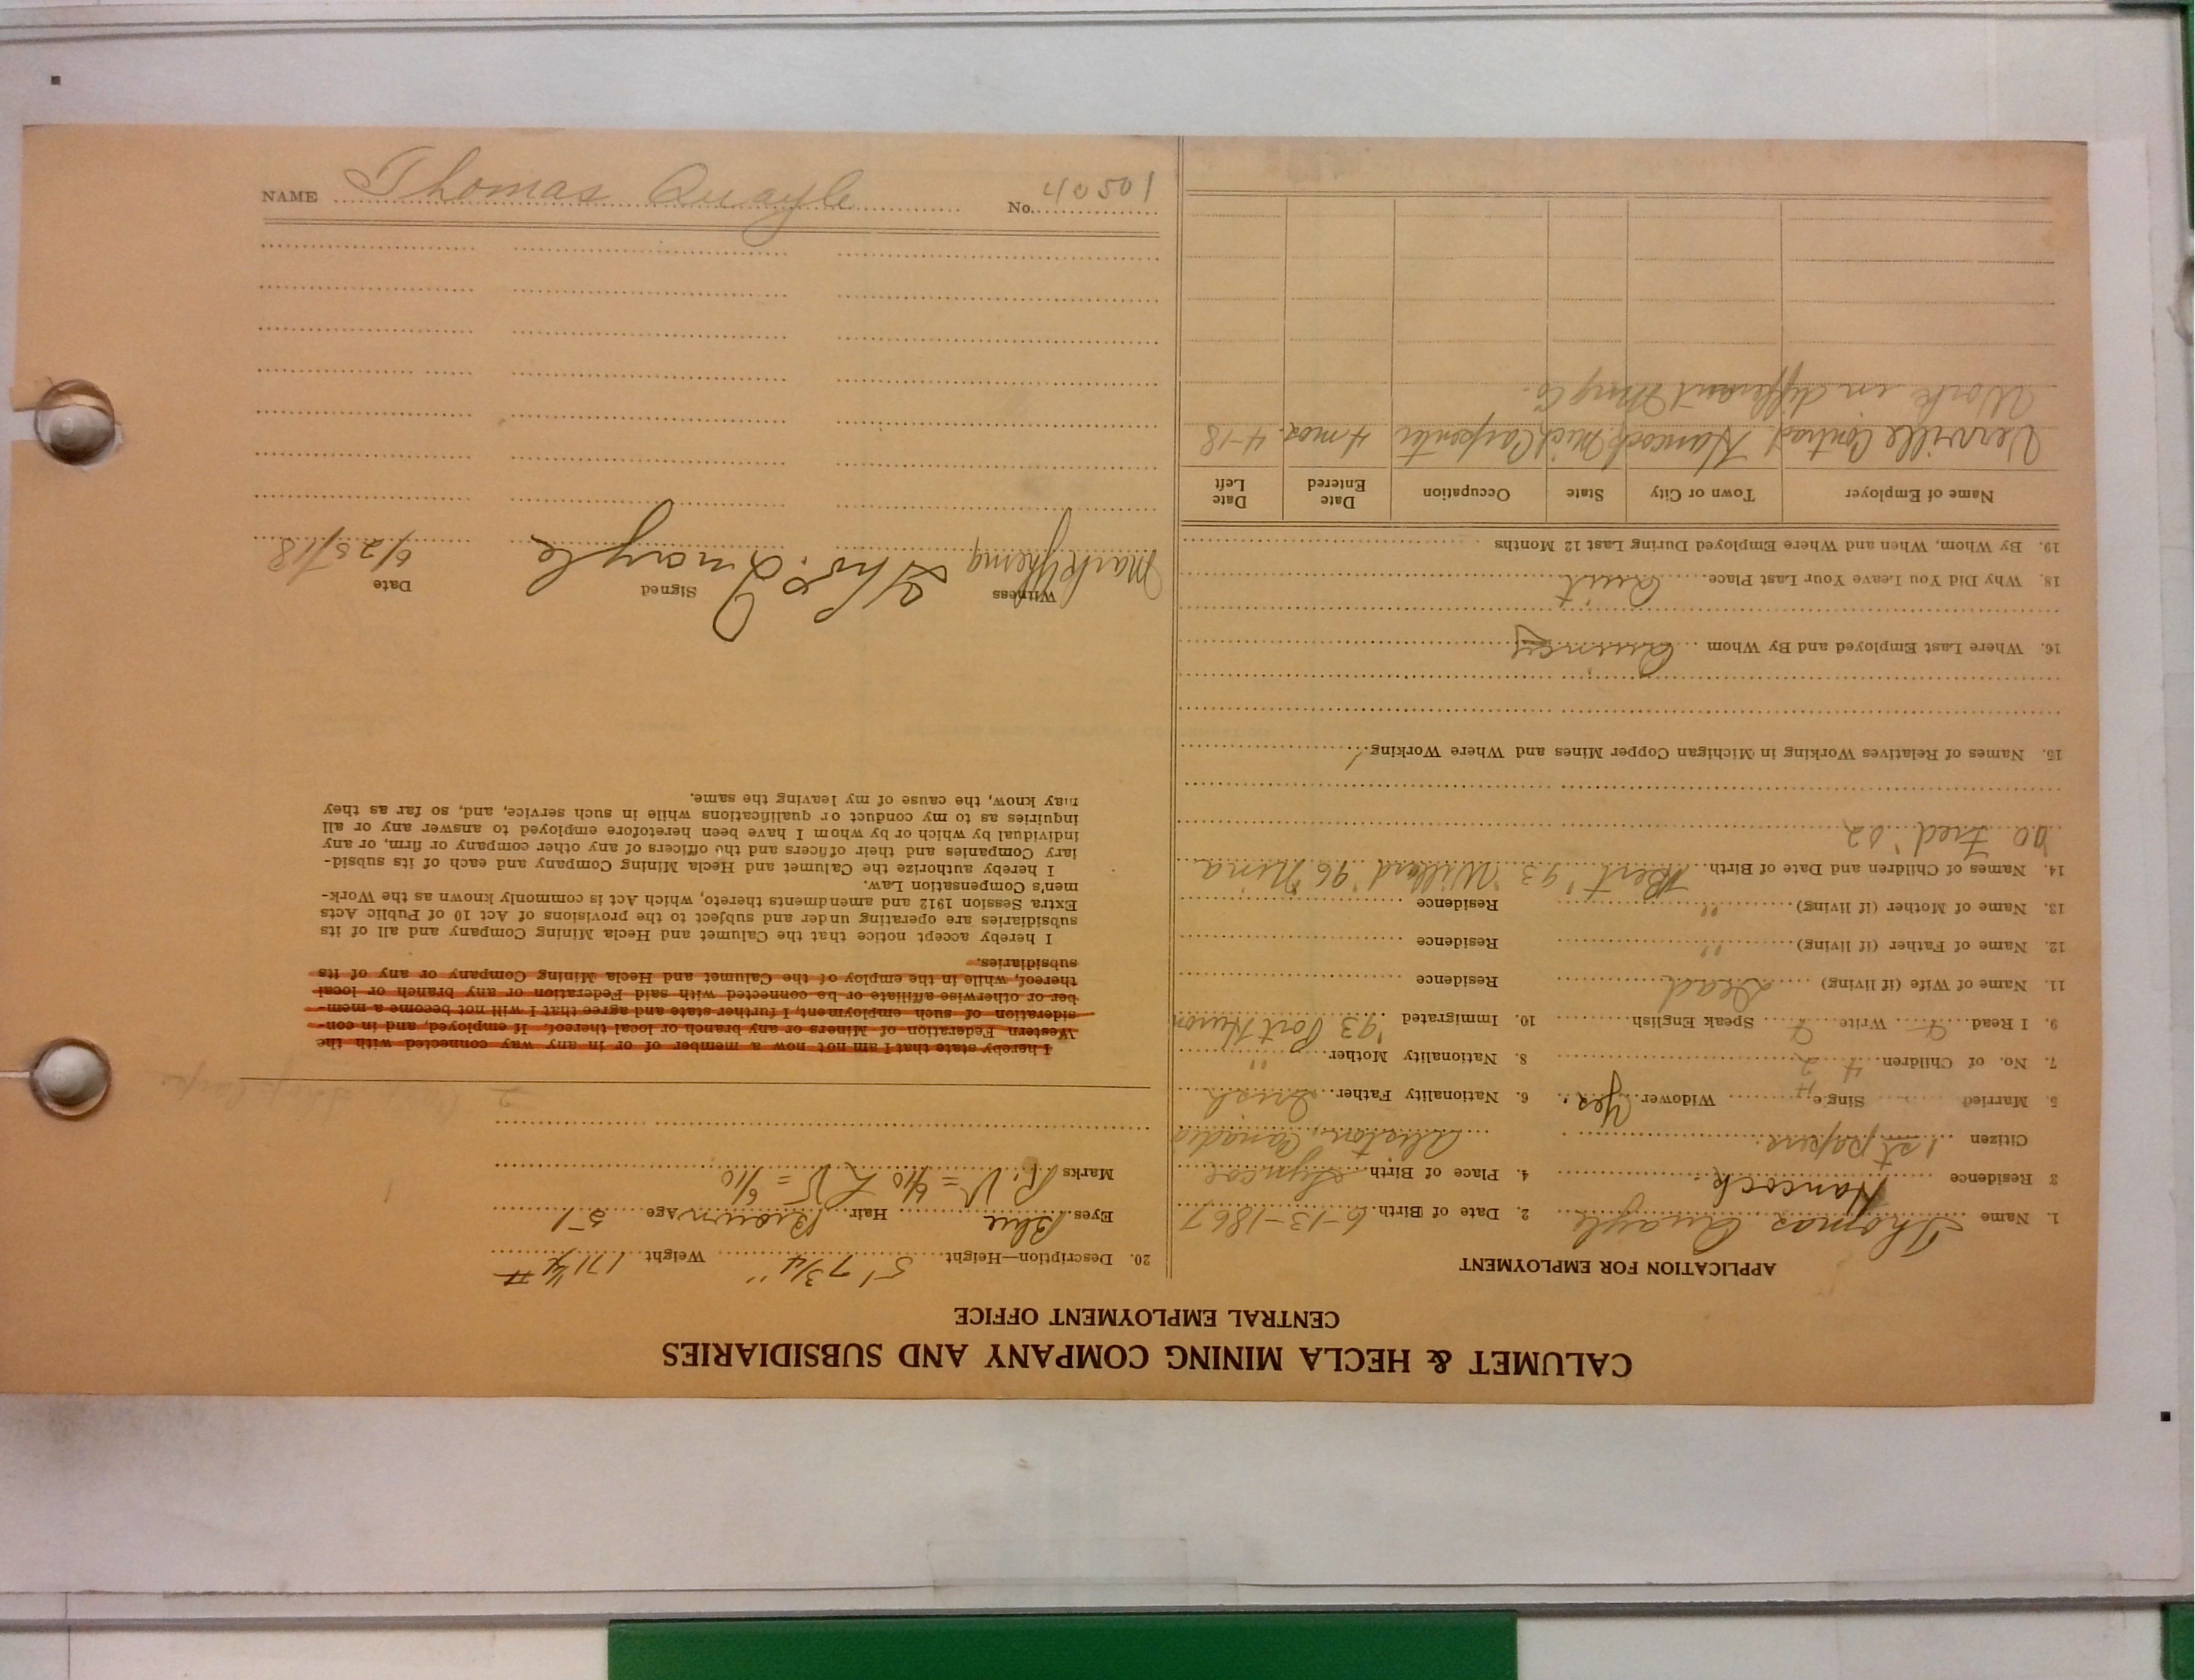 CALUMET & HECLA MINING COMPANY AND SUBSIDIARIES
CENTRAL EMPLOYMENT OFFICE
APPLICATION FOR EMPLOYMENT
1. Name Thomas Quayle 2. Date of Birth 6-13-1867
3 Residence Hancock. 4. Place of Birth Symcoe
Citizen 1st papers. Aliston, Canada
5. Married Single Widower Yes. 6. Nationality Father Irish
7. No. of Children 4 8. Nationality Mother "
9. I Read Write Speak English 10. Immigrated '93 Port Huron
11. Name of Wife (if living) Dead Residence
12. Name of Father (if living) " Residence
13. Name of Mother (if living) " Residence
14. Names of Children and Date of Birth Bert '93 Willard '96 Nina
'00 Fred '02
15. Names of Relatives Working in Michigan Copper Mines and Where Working
16. Where Last Employed and By Whom Quincy
18. Why Did You Leave Your Last Place Quit
19. By Whom, When and Where Employed During Last 12 Months
Name of Employer Town or City State Occupation Date Entered Date Left
Verville Contract. Hancock Mich Carpenter 4 mos. 4-18
Work in different Mng Co.
20. Description—Height 5' 7 3/4" Weight 171 1/4 #
Eyes Blue Hair Brown Age 51
Marks R. V = 6/10 L V = 6/10
I hereby state that I am not now a member of or in any way connected with the
Western Federation of Miners or any branch or local thereof. If employed, and in con-
sideration of such employment, I further state and agree that I will not become a mem-
ber or otherwise affiliate or be connected with said Federation or any branch or local
thereof, while in the employ of the Calumet and Hecla Mining Company or any of its
subsidiaries.
I hereby accept notice that the Calumet and Hecla Mining Company and all of its
subsidiaries are operating under and subject to the provisions of Act 10 of Public Acts
Extra Session 1912 and amendments thereto, which Act is commonly known as the Work-
men's Compensation Law.
I hereby authorize the Calumet and Hecla Mining Company and each of its subsid-
iary Companies and their officers and the officers of any other company or firm, or any
individual by which or by whom I have been heretofore employed to answer any or all
inquiries as to my conduct or qualifications while in such service, and, so far as they
may know, the cause of my leaving the same.
Witness Signed Date
Thos. Quayle 6/25/18
NAME Thomas Quayle No. 40501